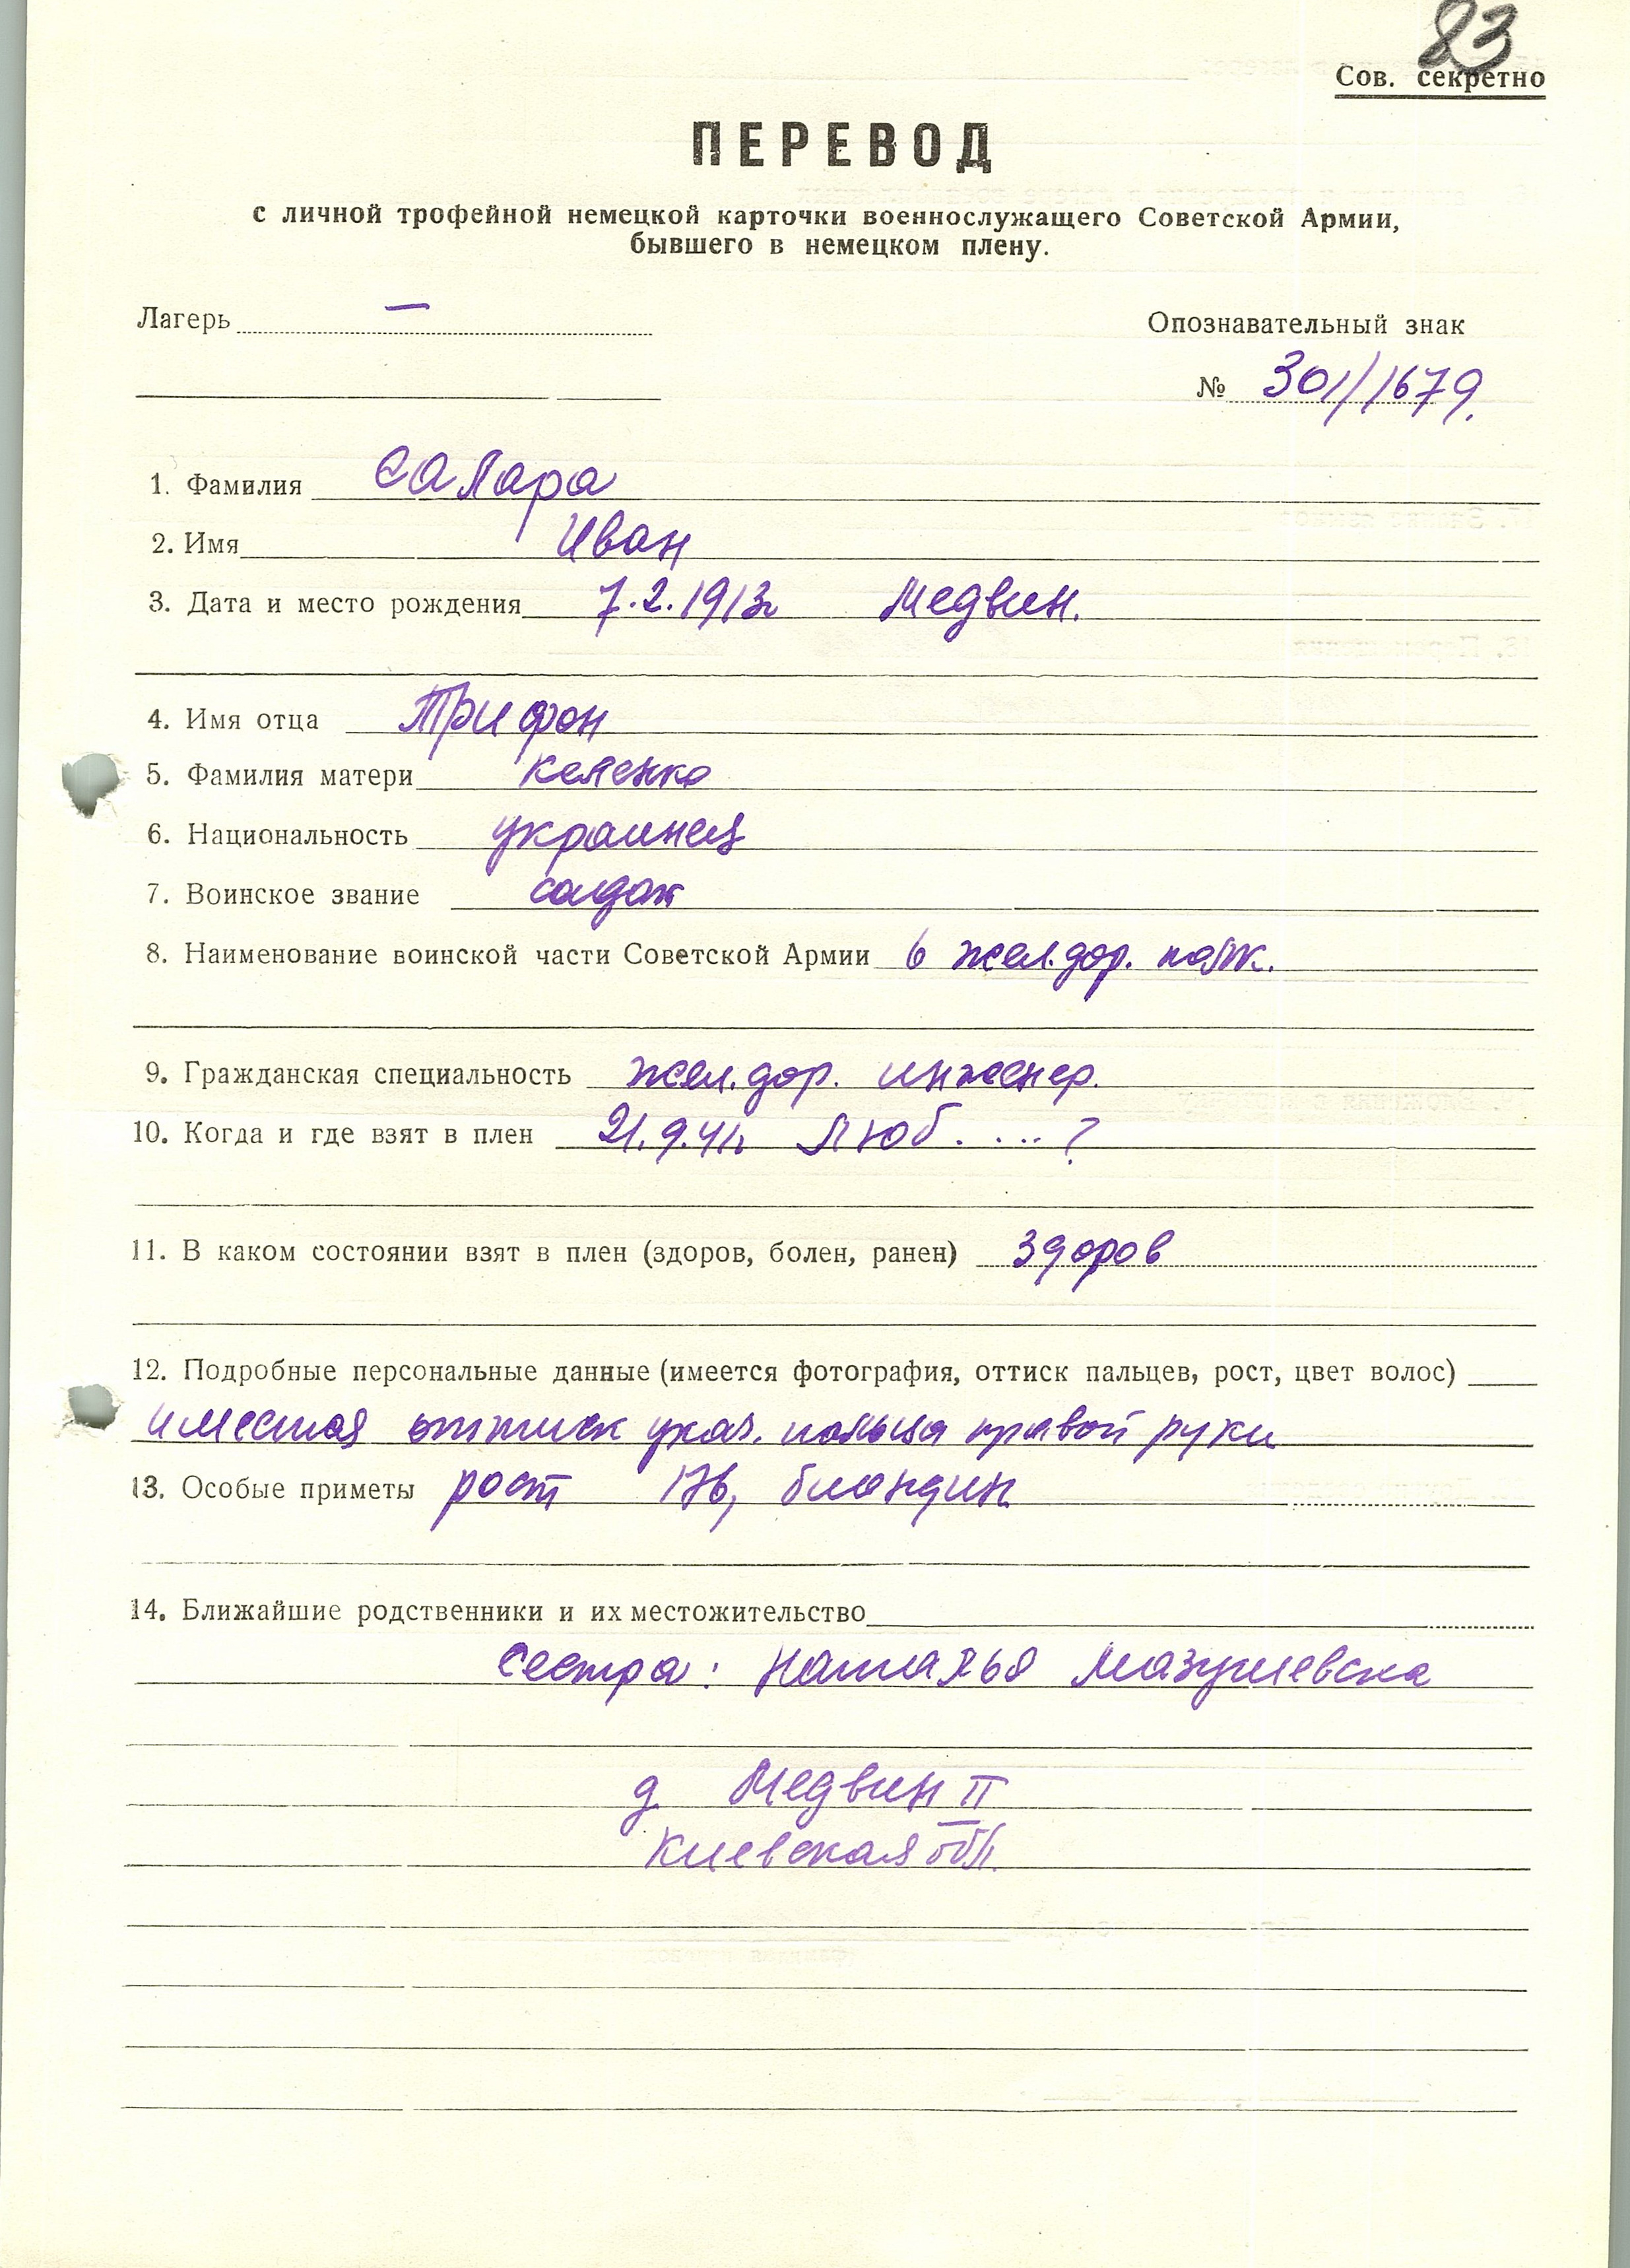 83
Сов. секретно
ПЕРЕВОД
с личной трофейной немецкой карточки военнослужащего Советской Армии,
бывшего в немецком плену.
Лагерь —
Опознавательный знак
№ 301/1679.
1. Фамилия Сапара
2. Имя Иван
3. Дата и место рождения 7.2.1913г Медвин.
4. Имя отца Трифон
5. Фамилия матери
6. Национальность украинец
7. Воинское звание солдат
8. Наименование воинской части Советской Армии 6 жел.дор. полк.
9. Гражданская специальность жел.дор. инженер.
10. Когда и где взят в плен 21.9.41г. Люб. ... ?
11. В каком состоянии взят в плен (здоров, болен, ранен) здоров
12. Подробные персональные данные (имеется фотография, оттиск пальцев, рост, цвет волос)
имеется оттиск указ. пальца правой руки
13. Особые приметы рост 176, блондин
14. Ближайшие родственники и их местожительство
сестра: Наталья
д Медвин II
Киевская обл.